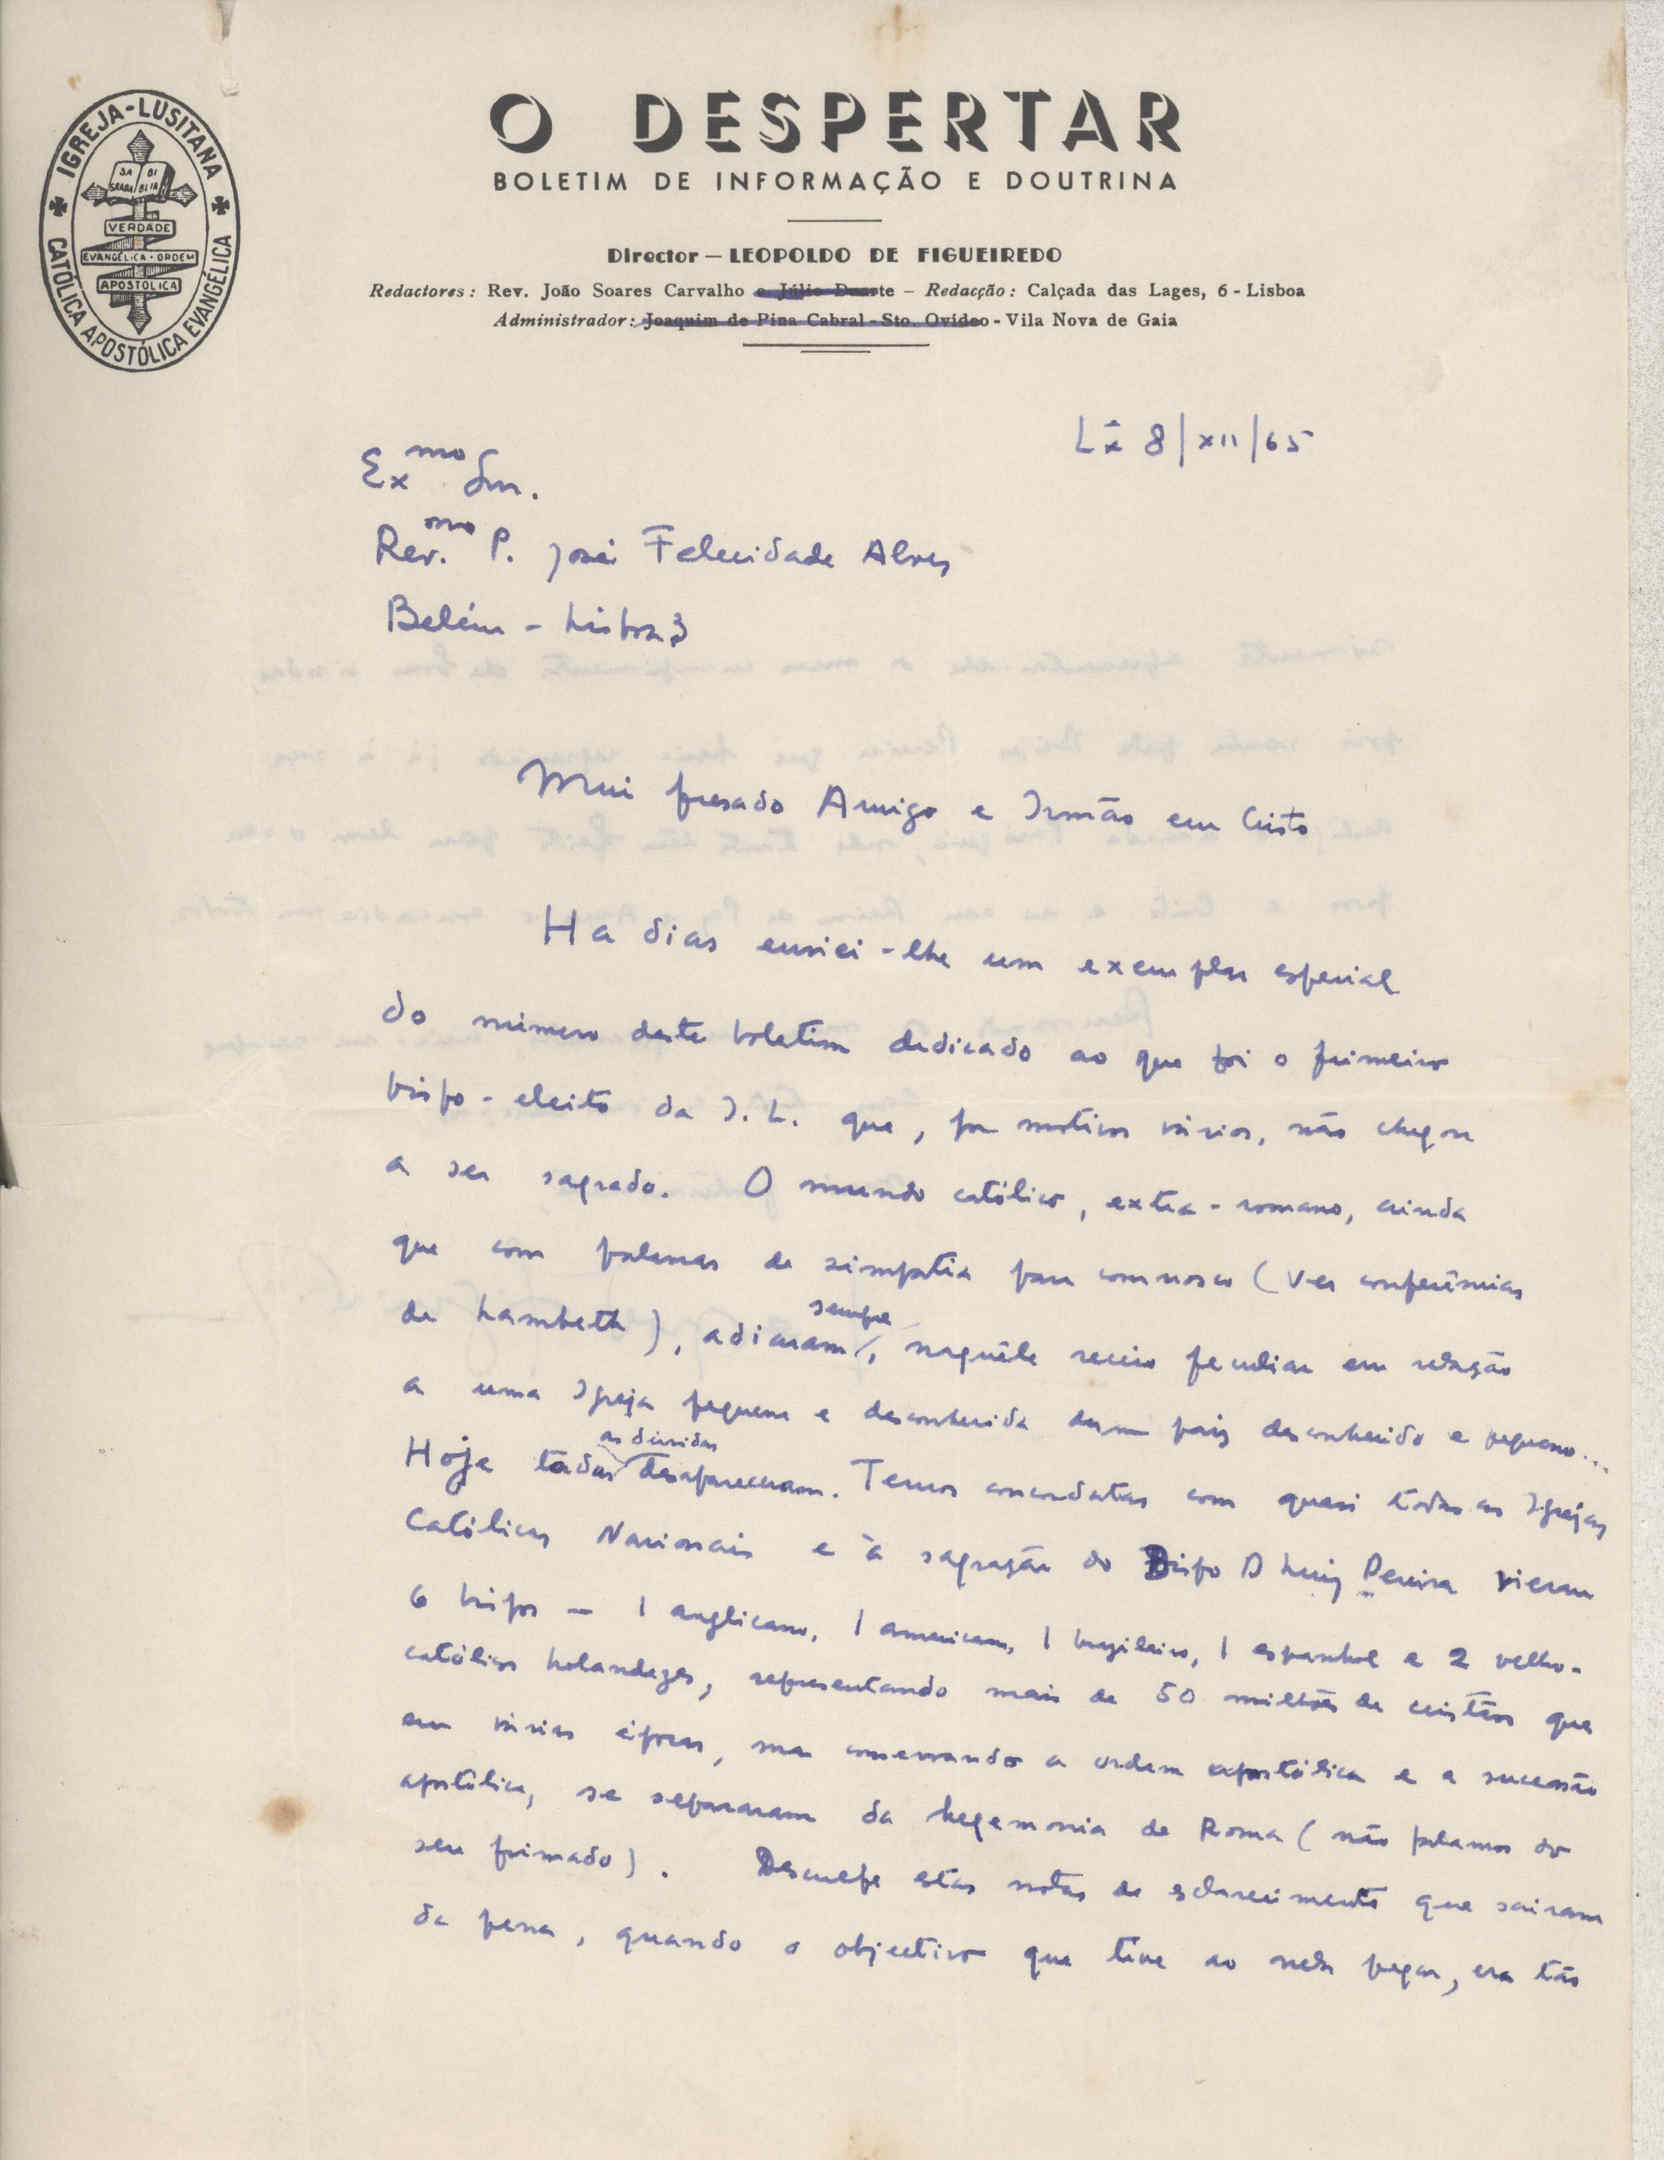 IGREJA-LUSITANA
CATÓLICA APOSTÓLICA EVANGÉLICA
VERDADE
EVANGÉLICA - ORDEM
APOSTÓLICA
O DESPERTAR
BOLETIM DE INFORMAÇÃO E DOUTRINA
Director — LEOPOLDO DE FIGUEIREDO
Redactores: Rev. João Soares Carvalho e Júlio Duarte — Redacção: Calçada das Lages, 6 - Lisboa
Administrador: Joaquim de Pina Cabral - Sto. Ovídeo - Vila Nova de Gaia
Lx 8/XII/65
Exmo Snr.
Rev.mo P. José Felicidade Alves
Belém - Lisboa 3
Mui presado Amigo e Irmão em Cristo
Ha dias enviei-lhe um exemplar especial
do número deste boletim dedicado ao que foi o primeiro
bispo-eleito da I. L. que, por motivos vários, não chegou
a ser sagrado. O mundo católico, extra-romano, ainda
que com palavras de simpatia para comnosco (ver conferências
de Lambeth), adiaram sempre, naquêle receio peculiar em relação
a uma Igreja pequena e desconhecida dum paiz desconhecido e pequeno...
Hoje todas as dúvidas desapareceram. Temos concordatas com quasi todas as Igrejas
Católicas Nacionais e à sagração do Bispo D Luiz Pereira vieram
6 bispos — 1 anglicano, 1 americano, 1 brazileiro, 1 espanhol e 2 velho-
católicos holandezes, representando mais de 50 milhões de cristãos que
em várias épocas, mas conservando a ordem apostólica e a sucessão
apostólica, se separaram da hegemonia de Roma (não falamos do
seu primado). Desculpe estas notas de esclarecimento que sairam
da pena, quando o objectivo que tive ao nela pegar, era tão